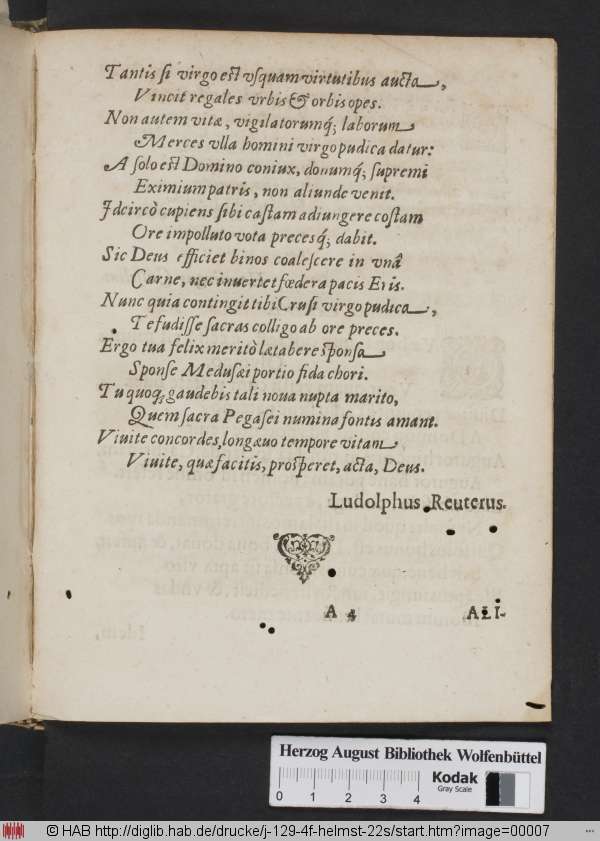 Tantis si virgo est vsquam virtutibus aucta,
Vincit regales vrbis & orbis opes.
Non autem vitæ, vigilatorumq́; laborum
Merces vlla homini virgo pudica datur:
A solo est Domino coniux, donumq́; supremi
Eximium patris, non aliunde venit.
Idcircò cupiens sibi castam adiungere costam
Ore impolluto vota precesq́; dabit.
Sic Deus efficiet binos coalescere in vnâ
Carne, nec inuertet fœdera pacis Eris.
Nunc quia contingit tibi Crusi virgo pudica,
Te fudisse sacras colligo ab ore preces.
Ergo tua felix meritò lætabere sponsa
Sponse Medusæi portio fida chori.
Tu quoq, gaudebis tali noua nupta marito,
Quem sacra Pegasei numina fontis amant.
Viuite concordes, longæuo tempore vitam
Viuite, quæ facitis, prosperet, acta, Deus.
Ludolphus Reuterus.
A 4
ALI-
Herzog August Bibliothek Wolfenbüttel
Kodak
Gray Scale
0 1 2 3 4
© HAB http://diglib.hab.de/drucke/j-129-4f-helmst-22s/start.htm?image=00007